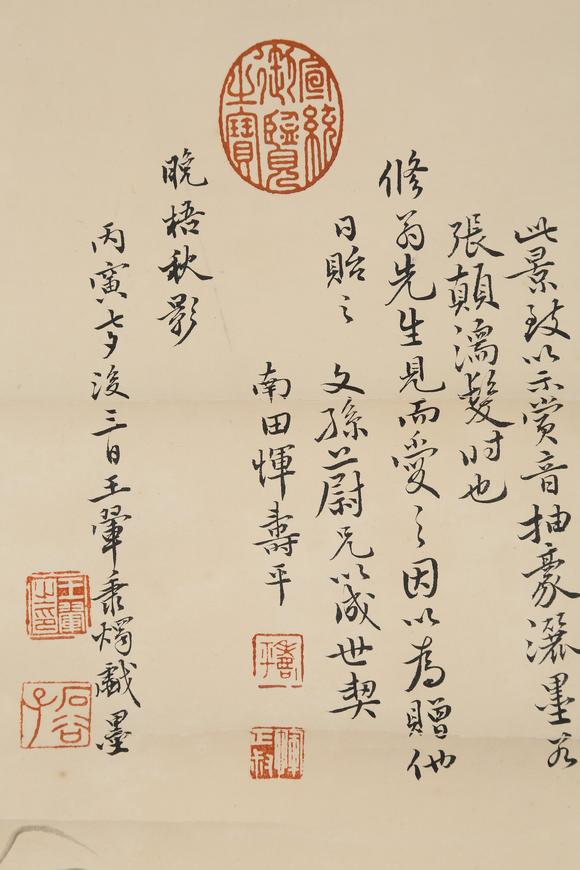 此景致以示賞音抽豪灑墨若
張顛濡髮时也
修翁先生見而愛之因以為贈他
日貽之 文孫上尉兄以成世契
南田惲壽平
壽平
惲正叔
宣統御覽之寶
晚梧秋影
丙寅七夕後三日王翬秉燭戲墨
王翬之印
石谷子